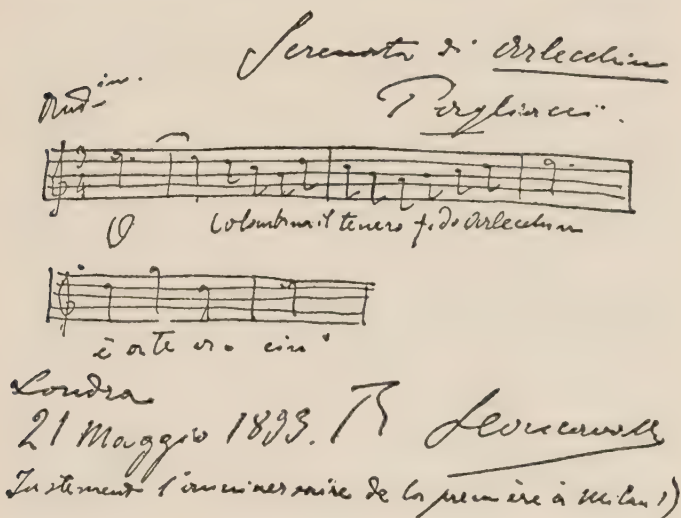 Serenata di Arlecchin
And.in.
Pagliacci.
3
4
O Colombina il tenero fido Arlecchin
è a te vicin
Londra
21 Maggio 1893. R Leoncavallo
Justement l'anniversaire de la première à Milan!)